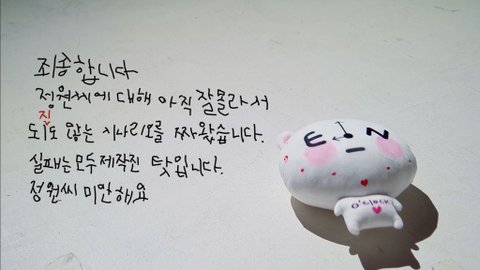 죄송합니다
정원씨에 대해 아직 잘몰라서
되도 않는 시나리오를 짜왔습니다.
진
실패는 모두 제작진 탓입니다.
정원씨 미안해요
E I N
O'CLOCK